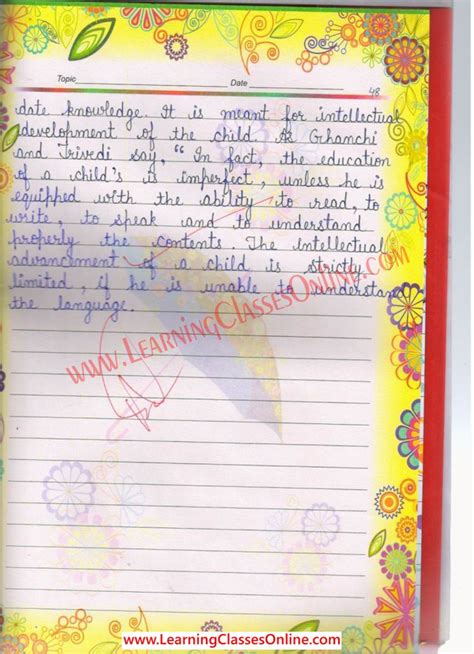 Topic Date
48
date knowledge. It is meant for intellectual
development of the child. As Ghanchi
and Trivedi say, "In fact, the education
of a child's is imperfect, unless he is
equipped with the ability to read, to
write, to speak and to understand
properly the contents. The intellectual
advancement of a child is strictly
limited, if he is unable to understand
the language.
www.LearningClassesOnline.com
www.LearningClassesOnline.com